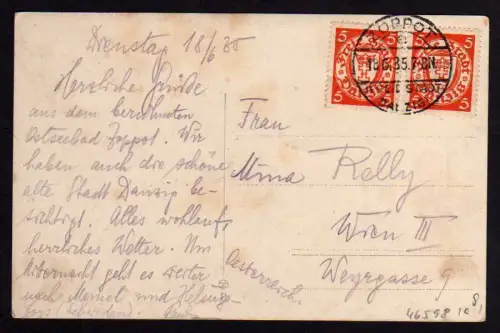 Dienstag 18/6 35
Herzliche Grüße
aus dem berühmten
Ostseebad Zoppot. Wir
haben auch die schöne
alte Stadt Danzig be-
sichtigt. Alles wohlauf,
herrliches Wetter. Um
Mitternacht geht es weiter
nach Memel und Helsing-
fors
Frau
Mina Relly
Wien III
Weyrgasse 9
Oesterreich
5 5
5 5
ZOPPOT
18.6.35.7-8N
46598